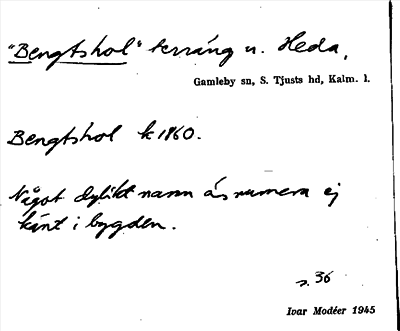 "Bengtshol" terräng u. Heda,
Gamleby sn, S. Tjusts hd, Kalm. l.
Bengtshol k 1860.
Något dylikt namn äs numera ej
känt i bygden.
s. 36
Ivar Modéer 1945